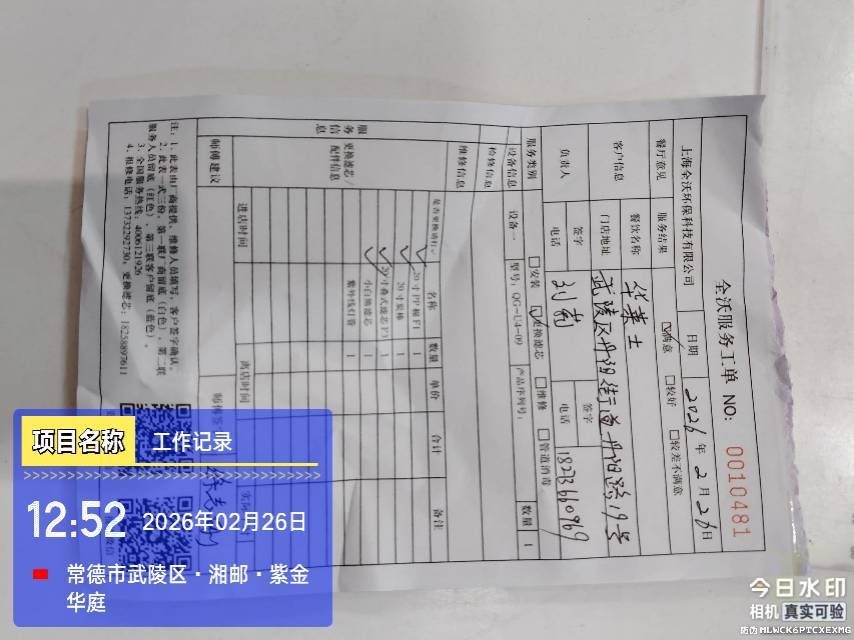 全沃服务工单 NO: 0010481
上海全沃环保科技有限公司 日期 2026年2月26日
餐厅意见 服务结果 ☑满意 □较好 □较差不满意
客户信息 餐饮名称 华莱士
门店地址 武陵区丹阳街道丹阳路19号
负责人 签字 签字
电话 刘 电话 18273660969
服务类别 □安装 ☑更换滤芯 □维修 □管道消毒
设备信息 设备一 型号: QG-U4-09 产品序列号: 数量 1
检修信息
维修信息
服务信息 更换滤芯/配件信息
是否更换请打√ 名称 数量 单价 合计 备注
√ 20寸PP棉F1 1
√ 20寸炭棒 1
√ 20寸叠式滤芯F3 1
√ 小白鲸滤芯 1
紫外线灯管 1
师傅建议
进店时间 离店时间
注: 1、此表由厂商提供、维修人员填写,客户签字确认。
2、此表一式三份,第一联厂商留底(白色)、第二联
服务人员留底(红色)、第三联客户留底(蓝色)。
3、全国服务热线: 4006121926
4、报修电话: 13732292730, 更换滤芯: 18258897611
项目名称 工作记录
12:52 2026年02月26日
常德市武陵区·湘邮·紫金
华庭
今日水印
相机 真实可验
防伪 MLWCK6PTCXEXMG